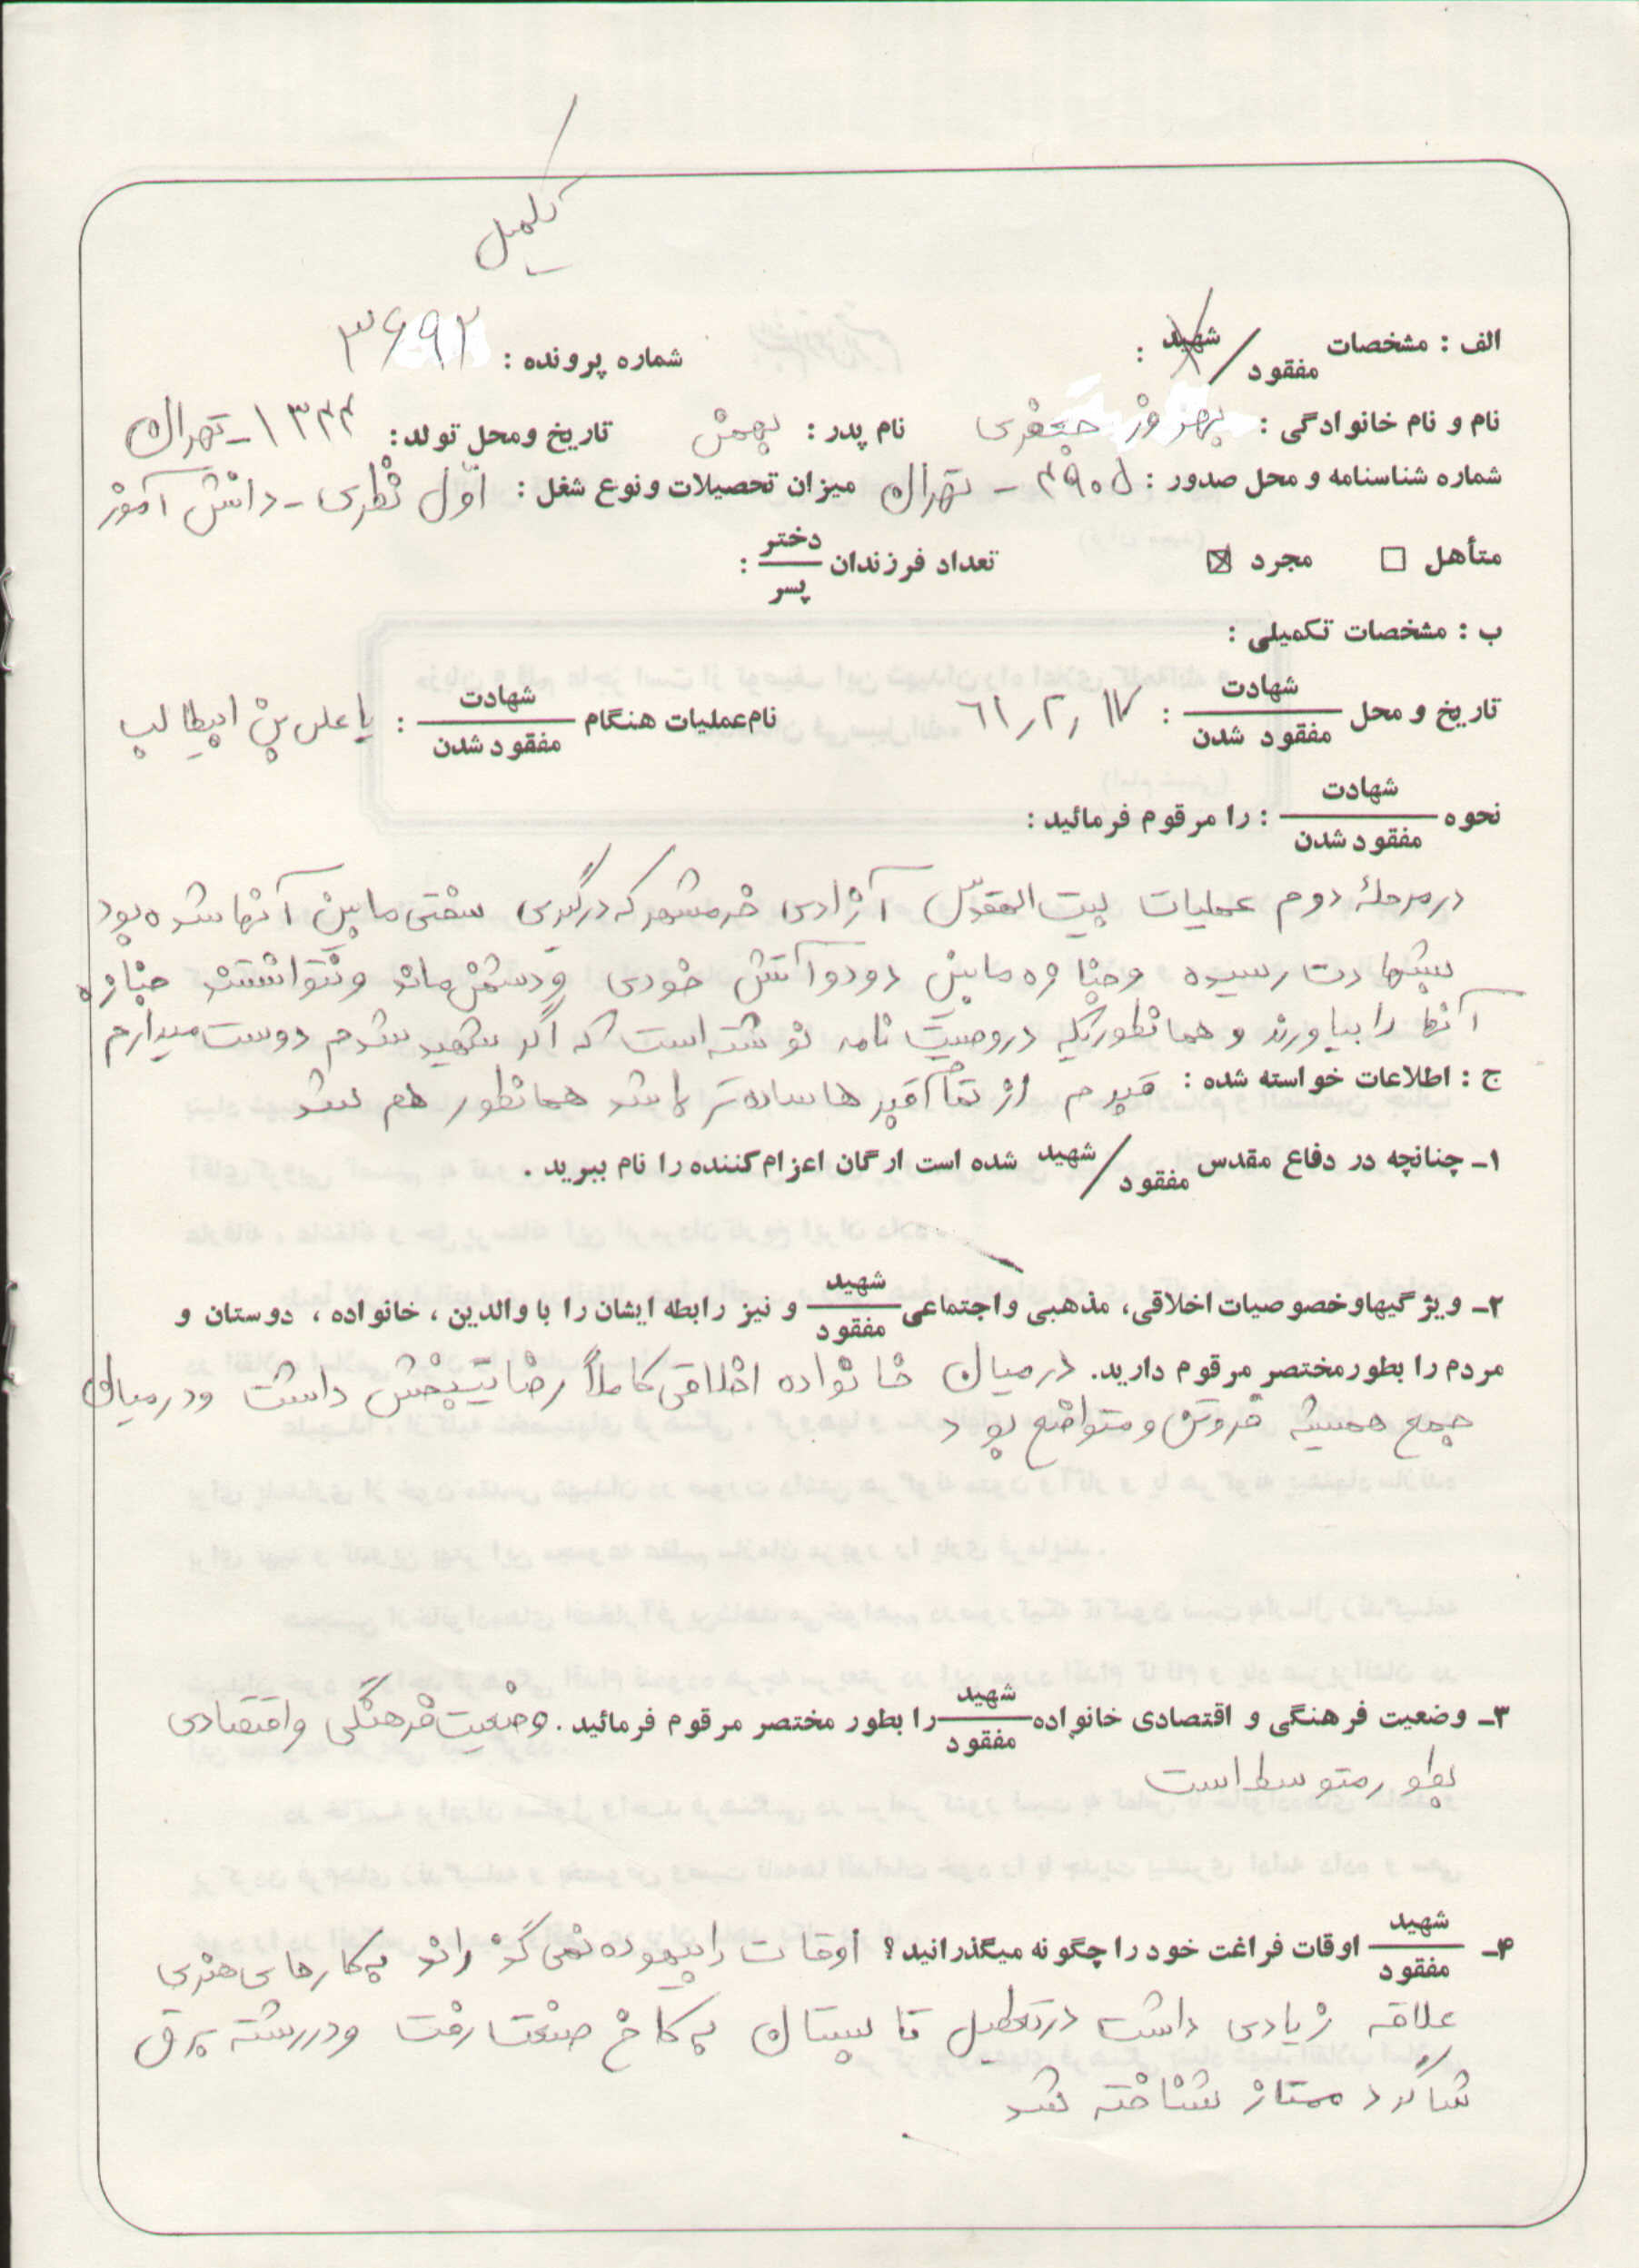 تکمیل
الف : مشخصات شهید / مفقود : شماره پرونده : ۳۶۹۲
نام و نام خانوادگی : بهروز جعفری نام پدر : بهمن تاریخ ومحل تولد: ۱۳۴۴ - تهران
شماره شناسنامه و محل صدور : ۴۹۰۵ - تهران میزان تحصیلات و نوع شغل : اوّل نظری - دانش آموز
متأهل □ مجرد ☒ تعداد فرزندان دختر / پسر :
ب : مشخصات تکمیلی :
تاریخ و محل شهادت / مفقود شدن : ۶۱٫۲٫۱۷ نام عملیات هنگام شهادت / مفقود شدن : یا علی بن ابیطالب
نحوه شهادت / مفقود شدن : را مرقوم فرمائید :
در مرحلهٔ دوم عملیات بیت المقدّس آزادی خرمشهر که درگیری سختی مابین آنها شده بود
بشهادت رسیده و جنازه مابین دو دو آتش خودی و دشمن ماند و نتوانستند جنازه
آنها را بیاورند و همانطوریکه در وصیت نامه نوشته است که اگر شهید شدم دوست میدارم
ج : اطلاعات خواسته شده : قبرم از تمام قبرها ساده تر باشد همانطور هم شد
۱ـ چنانچه در دفاع مقدس شهید / مفقود شده است ارگان اعزام کننده را نام ببرید .
۲ـ ویژگیهاوخصوصیات اخلاقی، مذهبی واجتماعی شهید / مفقود و نیز رابطه ایشان را با والدین ، خانواده ، دوستان و
مردم را بطور مختصر مرقوم دارید. در میان خانواده اخلاقی کاملاً رضایتبخش داشت و در میان
جمع همیشه فروتن و متواضع بود
۳ـ وضعیت فرهنگی و اقتصادی خانواده شهید / مفقود را بطور مختصر مرقوم فرمائید . وضعیت فرهنگی و اقتصادی
بطور متوسط است
۴ـ شهید / مفقود اوقات فراغت خود را چگونه میگذرانید؟ اوقات را بیهوده نمی گذراند به کارهای هنری
علاقه زیادی داشت در تعطیل تابستان به کاخ صنعت رفت و در رشته برق
شاگرد ممتاز شناخته شد